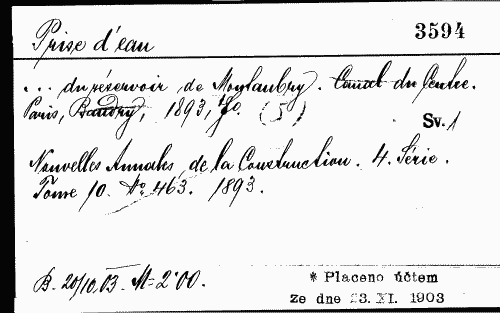 Prise d'eau
3594
... du réservoir de Moylaubry. Canal du Centre.
Paris, Baudry, 1893, fo. (5)
Sv. 1
Nouvelles Annales de la Construction. 4. Série.
Tome 10. No 463. 1893.
B. 20/10.03. M = 2·00.
* Placeno účtem
ze dne 23. XI. 1903